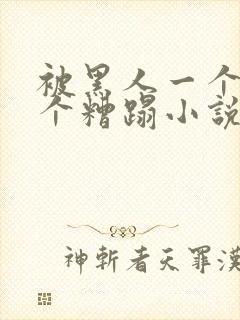 被黑人一个
个糟蹋小説
神斬者天罪漢